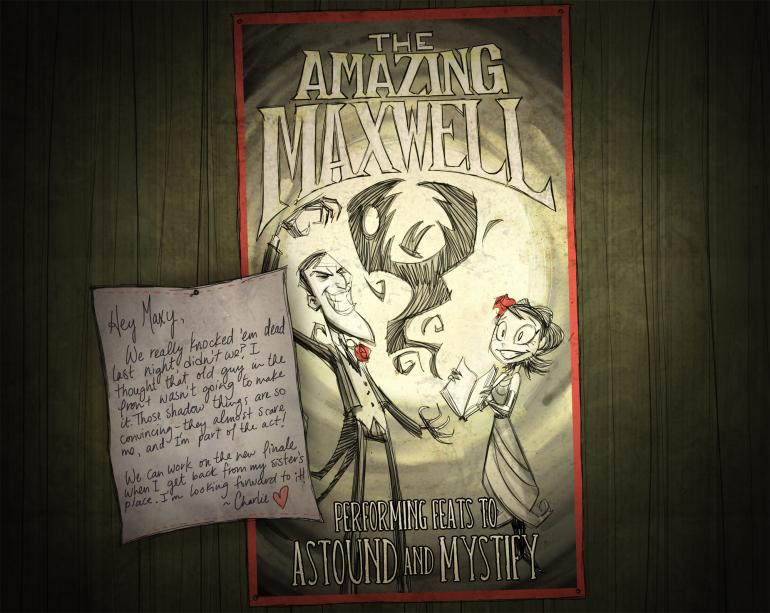 THE
AMAZING
MAXWELL
Hey Maxy,
We really knocked 'em dead
last night didn't we? I
thought that old guy in the
front wasn't going to make
it. Those shadow things are so
convincing - they almost scare
me, and I'm part of the act!
We can work on the new finale
when I get back from my sister's
place. I'm looking forward to it!
~ Charlie
PERFORMING FEATS TO
ASTOUND AND MYSTIFY